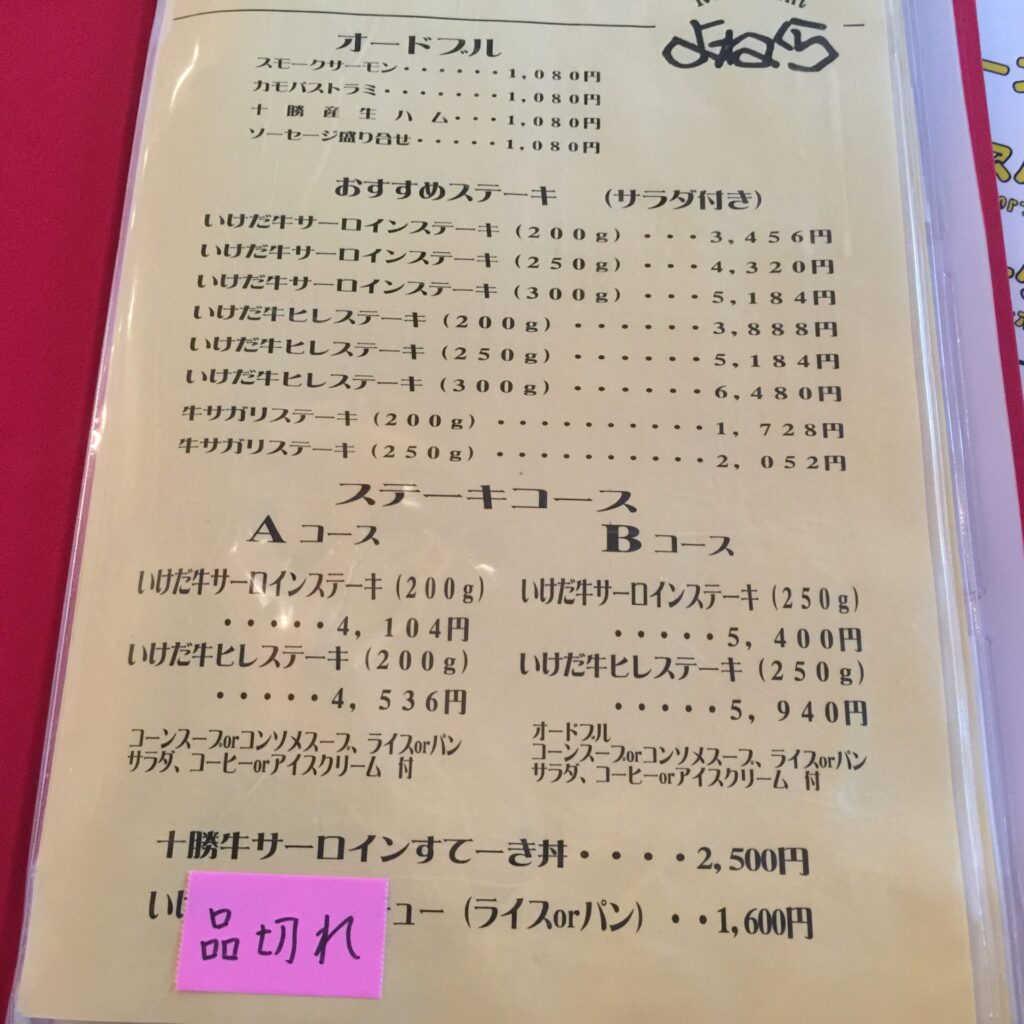 よねくら
オードブル
スモークサーモン・・・・・・1,080円
カモパストラミ・・・・・・・1,080円
十勝産生ハム・・・1,080円
ソーセージ盛り合せ・・・・・1,080円
おすすめステーキ (サラダ付き)
いけだ牛サーロインステーキ(200g)・・・3,456円
いけだ牛サーロインステーキ(250g)・・・4,320円
いけだ牛サーロインステーキ(300g)・・・5,184円
いけだ牛ヒレステーキ(200g)・・・・・・3,888円
いけだ牛ヒレステーキ(250g)・・・・・・5,184円
いけだ牛ヒレステーキ(300g)・・・・・・6,480円
牛サガリステーキ(200g)・・・・・・・・・・1,728円
牛サガリステーキ(250g)・・・・・・・・・・2,052円
ステーキコース
Aコース
いけだ牛サーロインステーキ(200g)
・・・・・4,104円
いけだ牛ヒレステーキ(200g)
・・・・・4,536円
コーンスープorコンソメスープ、ライスorパン
サラダ、コーヒーorアイスクリーム 付
Bコース
いけだ牛サーロインステーキ(250g)
・・・・・5,400円
いけだ牛ヒレステーキ(250g)
・・・・・5,940円
オードブル
コーンスープorコンソメスープ、ライスorパン
サラダ、コーヒーorアイスクリーム 付
十勝牛サーロインすてーき丼・・・・2,500円
い チュー(ライスorパン)・・1,600円
品切れ